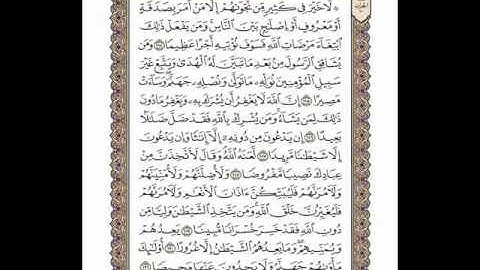 ۞ لَّا خَيْرَ فِي كَثِيرٍ مِّن نَّجْوَىٰهُمْ إِلَّا مَنْ أَمَرَ بِصَدَقَةٍ
أَوْ مَعْرُوفٍ أَوْ إِصْلَٰحٍۭ بَيْنَ ٱلنَّاسِۚ وَمَن يَفْعَلْ ذَٰلِكَ
ٱبْتِغَآءَ مَرْضَاتِ ٱللَّهِ فَسَوْفَ نُؤْتِيهِ أَجْرًا عَظِيمًا ١١٤ وَمَن
يُشَاقِقِ ٱلرَّسُولَ مِنۢ بَعْدِ مَا تَبَيَّنَ لَهُ ٱلْهُدَىٰ وَيَتَّبِعْ غَيْرَ
سَبِيلِ ٱلْمُؤْمِنِينَ نُوَلِّهِۦ مَا تَوَلَّىٰ وَنُصْلِهِۦ جَهَنَّمَۖ وَسَآءَتْ
مَصِيرًا ١١٥ إِنَّ ٱللَّهَ لَا يَغْفِرُ أَن يُشْرَكَ بِهِۦ وَيَغْفِرُ مَا دُونَ
ذَٰلِكَ لِمَن يَشَآءُۚ وَمَن يُشْرِكْ بِٱللَّهِ فَقَدْ ضَلَّ ضَلَٰلًۢا
بَعِيدًا ١١٦ إِن يَدْعُونَ مِن دُونِهِۦٓ إِلَّآ إِنَٰثًا وَإِن يَدْعُونَ
إِلَّا شَيْطَٰنًا مَّرِيدًا ١١٧ لَّعَنَهُ ٱللَّهُۘ وَقَالَ لَأَتَّخِذَنَّ مِنْ
عِبَادِكَ نَصِيبًا مَّفْرُوضًا ١١٨ وَلَأُضِلَّنَّهُمْ وَلَأُمَنِّيَنَّهُمْ
وَلَءَامُرَنَّهُمْ فَلَيُبَتِّكُنَّ ءَاذَانَ ٱلْأَنْعَٰمِ وَلَءَامُرَنَّهُمْ
فَلَيُغَيِّرُنَّ خَلْقَ ٱللَّهِۚ وَمَن يَتَّخِذِ ٱلشَّيْطَٰنَ وَلِيًّا مِّن
دُونِ ٱللَّهِ فَقَدْ خَسِرَ خُسْرَانًا مُّبِينًا ١١٩ يَعِدُهُمْ
وَيُمَنِّيهِمْۖ وَمَا يَعِدُهُمُ ٱلشَّيْطَٰنُ إِلَّا غُرُورًا ١٢٠ أُو۟لَٰٓئِكَ
مَأْوَىٰهُمْ جَهَنَّمُ وَلَا يَجِدُونَ عَنْهَا مَحِيصًا ١٢١